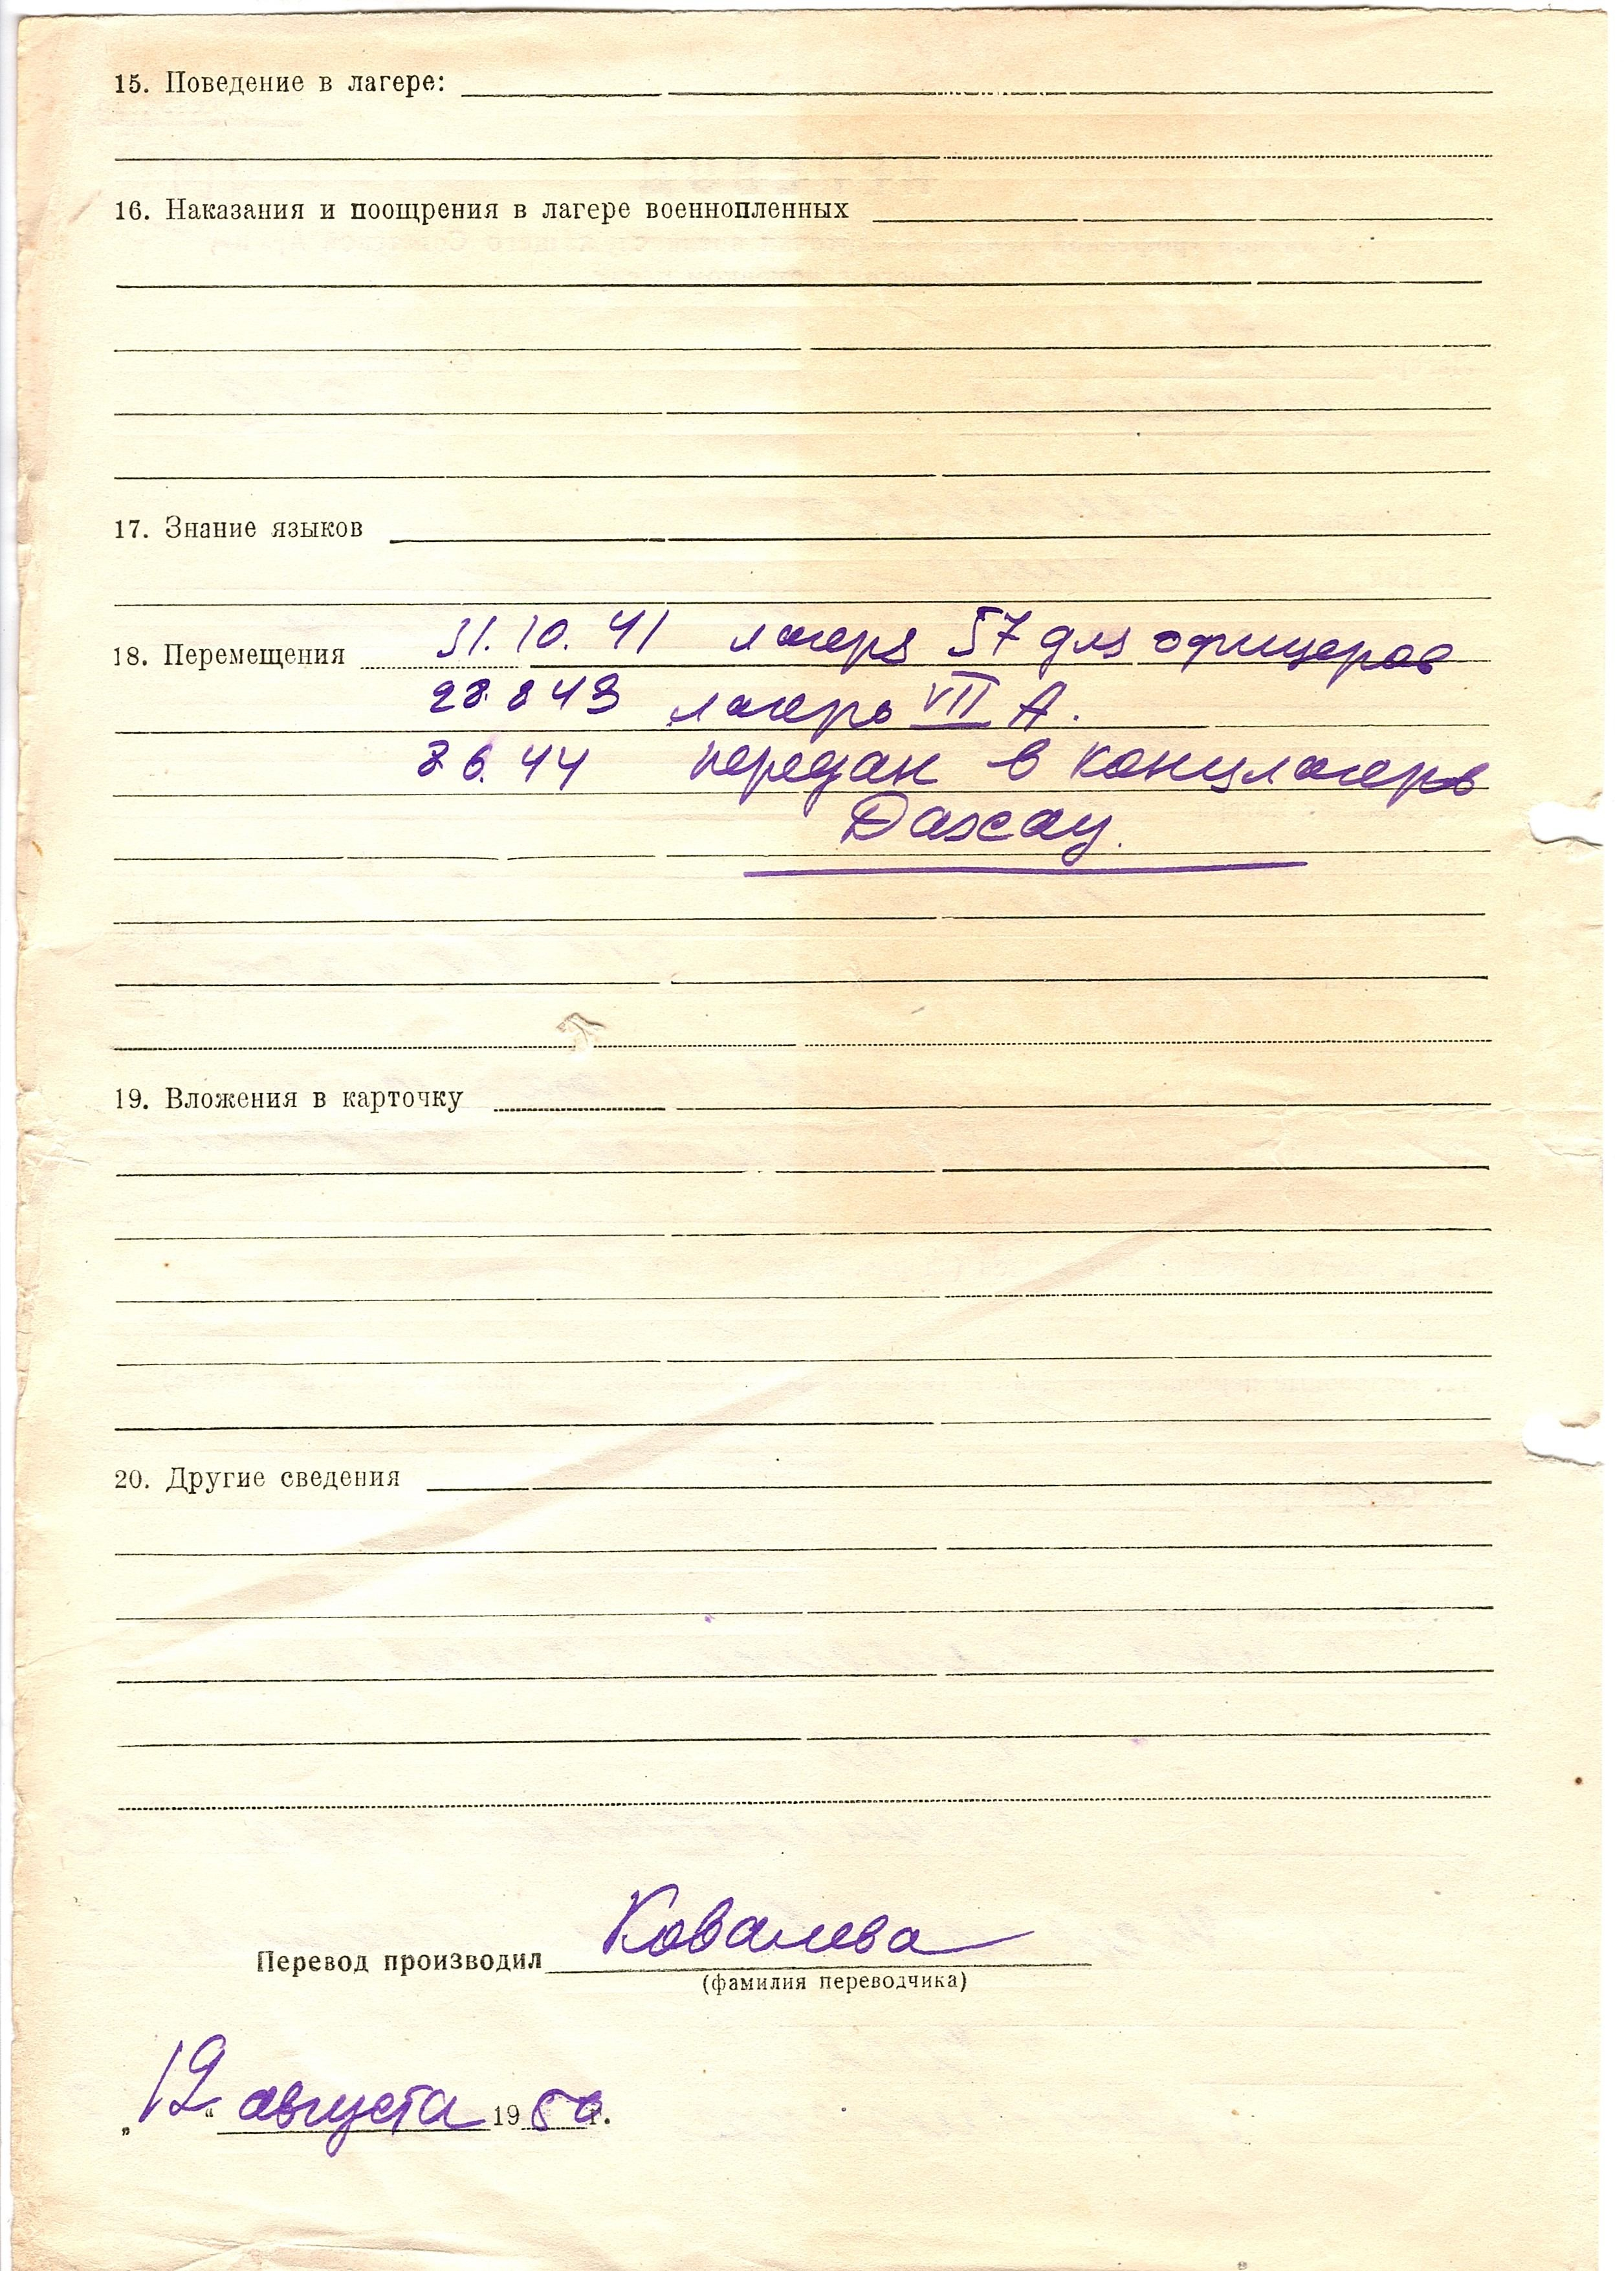 15. Поведение в лагере:
16. Наказания и поощрения в лагере военнопленных
17. Знание языков
18. Перемещения 31. 10. 41 лагерь 57 для офицеров
28. 8 43 лагерь VII А.
8 6. 44 передан в концлагерь
Дахау.
19. Вложения в карточку
20. Другие сведения
Перевод производил Ковалева
(фамилия переводчика)
„12“ августа 1950 г.